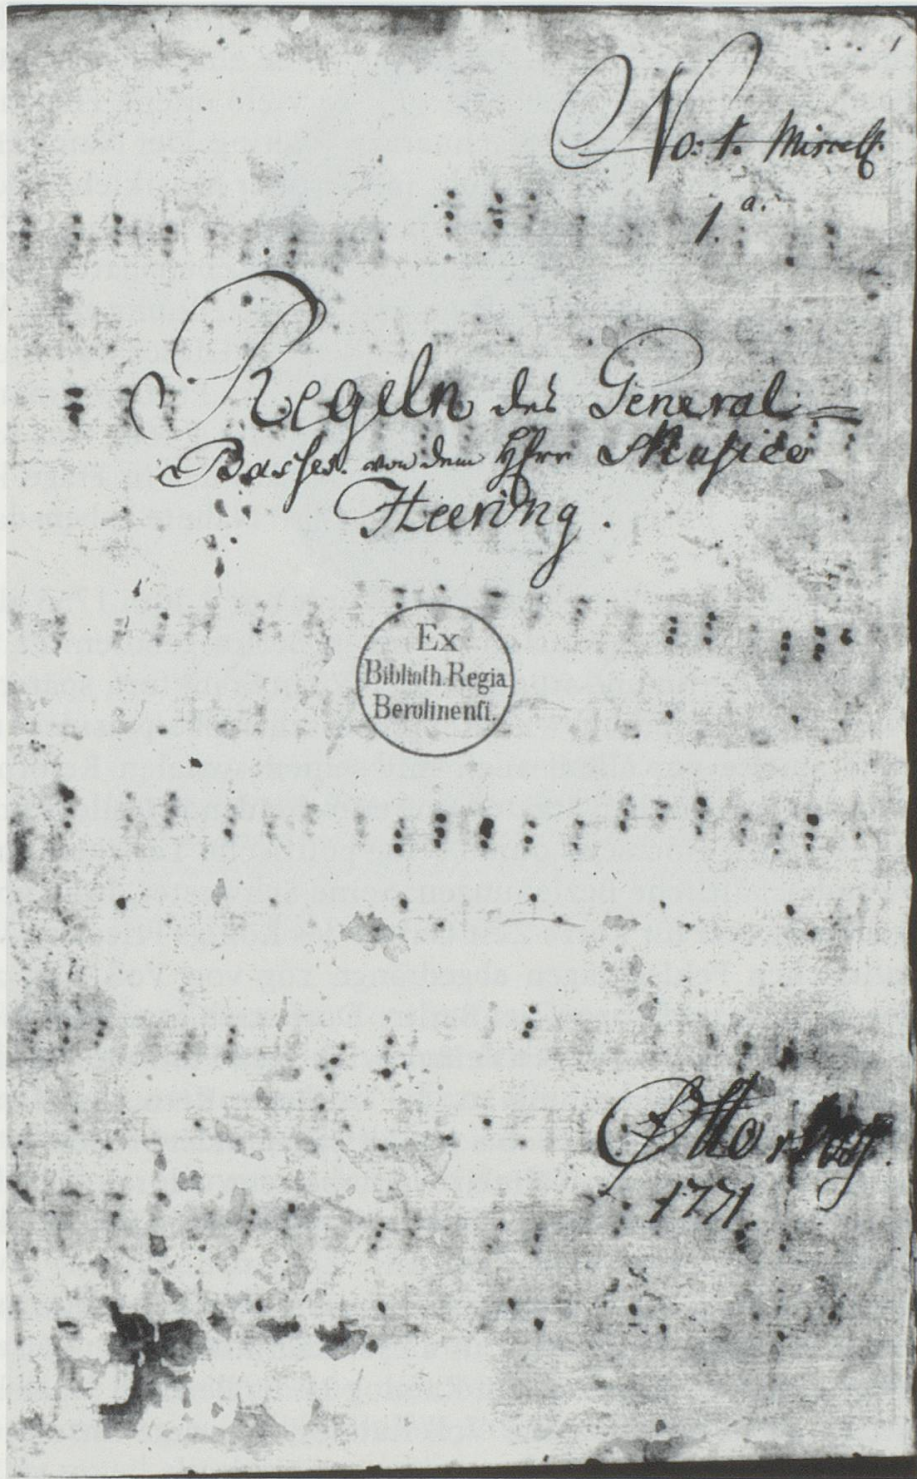 No: 1. Miscell.
1.a.
Regeln des General=
Basses. von dem Hfrr Musico
Heering.
Ex
Biblioth. Regia
Berolinensi.
Otto
1771.